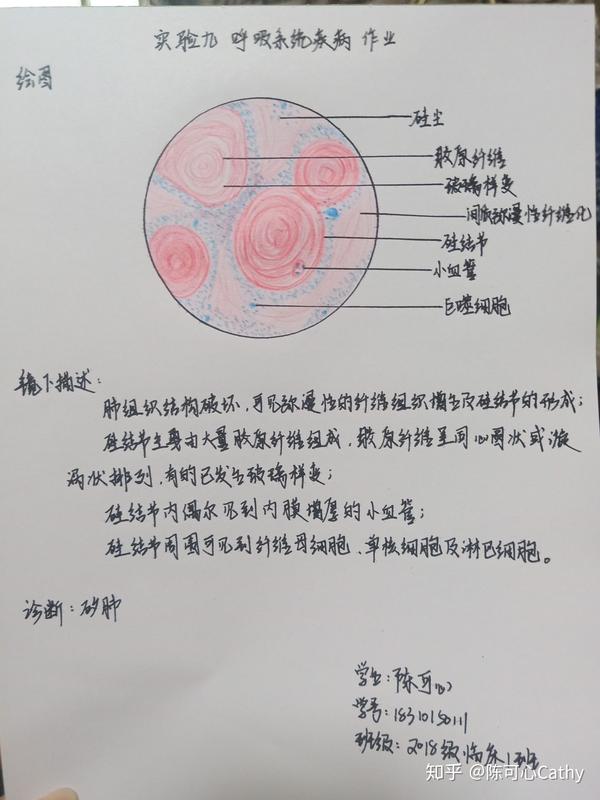 实验九 呼吸系统疾病 作业
绘图
硅尘
胶原纤维
玻璃样变
间质弥漫性纤维化
硅结节
小血管
巨噬细胞
镜下描述:
肺组织结构破坏,可见弥漫性的纤维组织增生及硅结节的形成;
硅结节主要由大量胶原纤维组成,胶原纤维呈同心圆状或漩
涡状排列,有的已发生玻璃样变;
硅结节内偶尔见到内膜增厚的小血管;
硅结节周围可见到纤维母细胞、单核细胞及淋巴细胞。
诊断:矽肺
学生:陈可心
学号:1831015011
班级:2018级临床1班
知乎 @陈可心Cathy